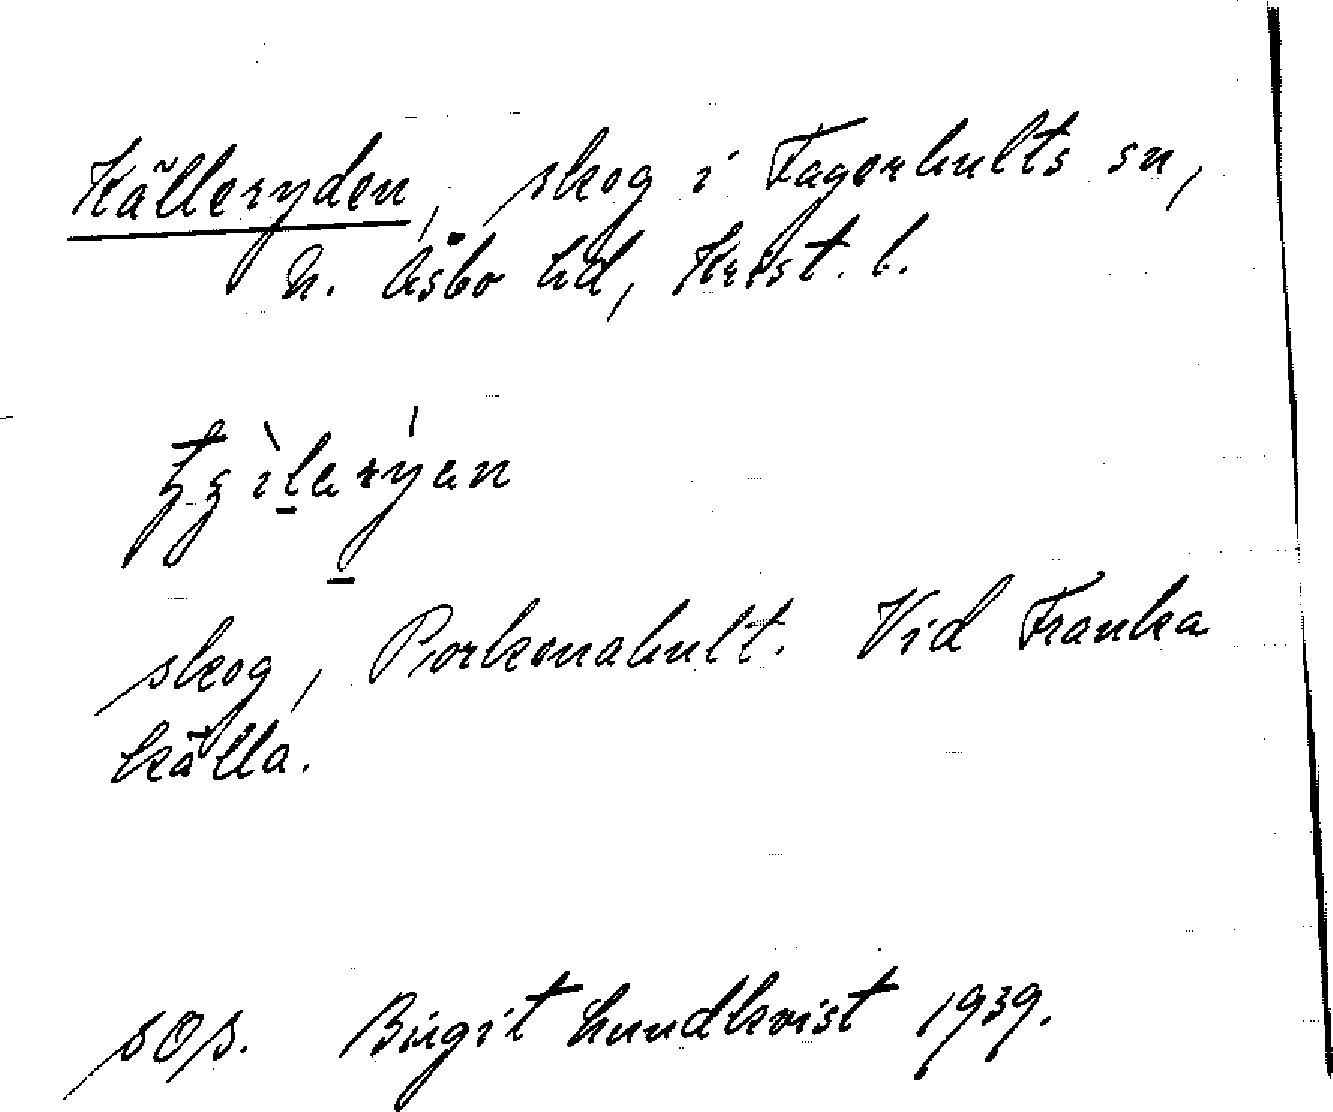 Källeryden, skog i Fagerhults sn,
N. Åsbo hd, Krist. l.
skog, Porkenahult. Vid Franka
källa.
sOs. Birgit Lundkvist 1939.